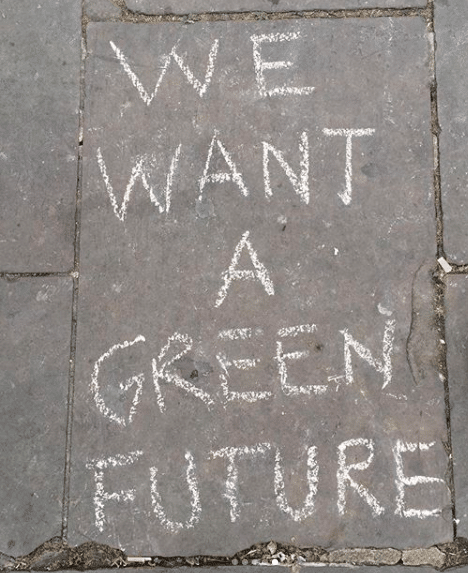 WE
WANT
A
GREEN
FUTURE